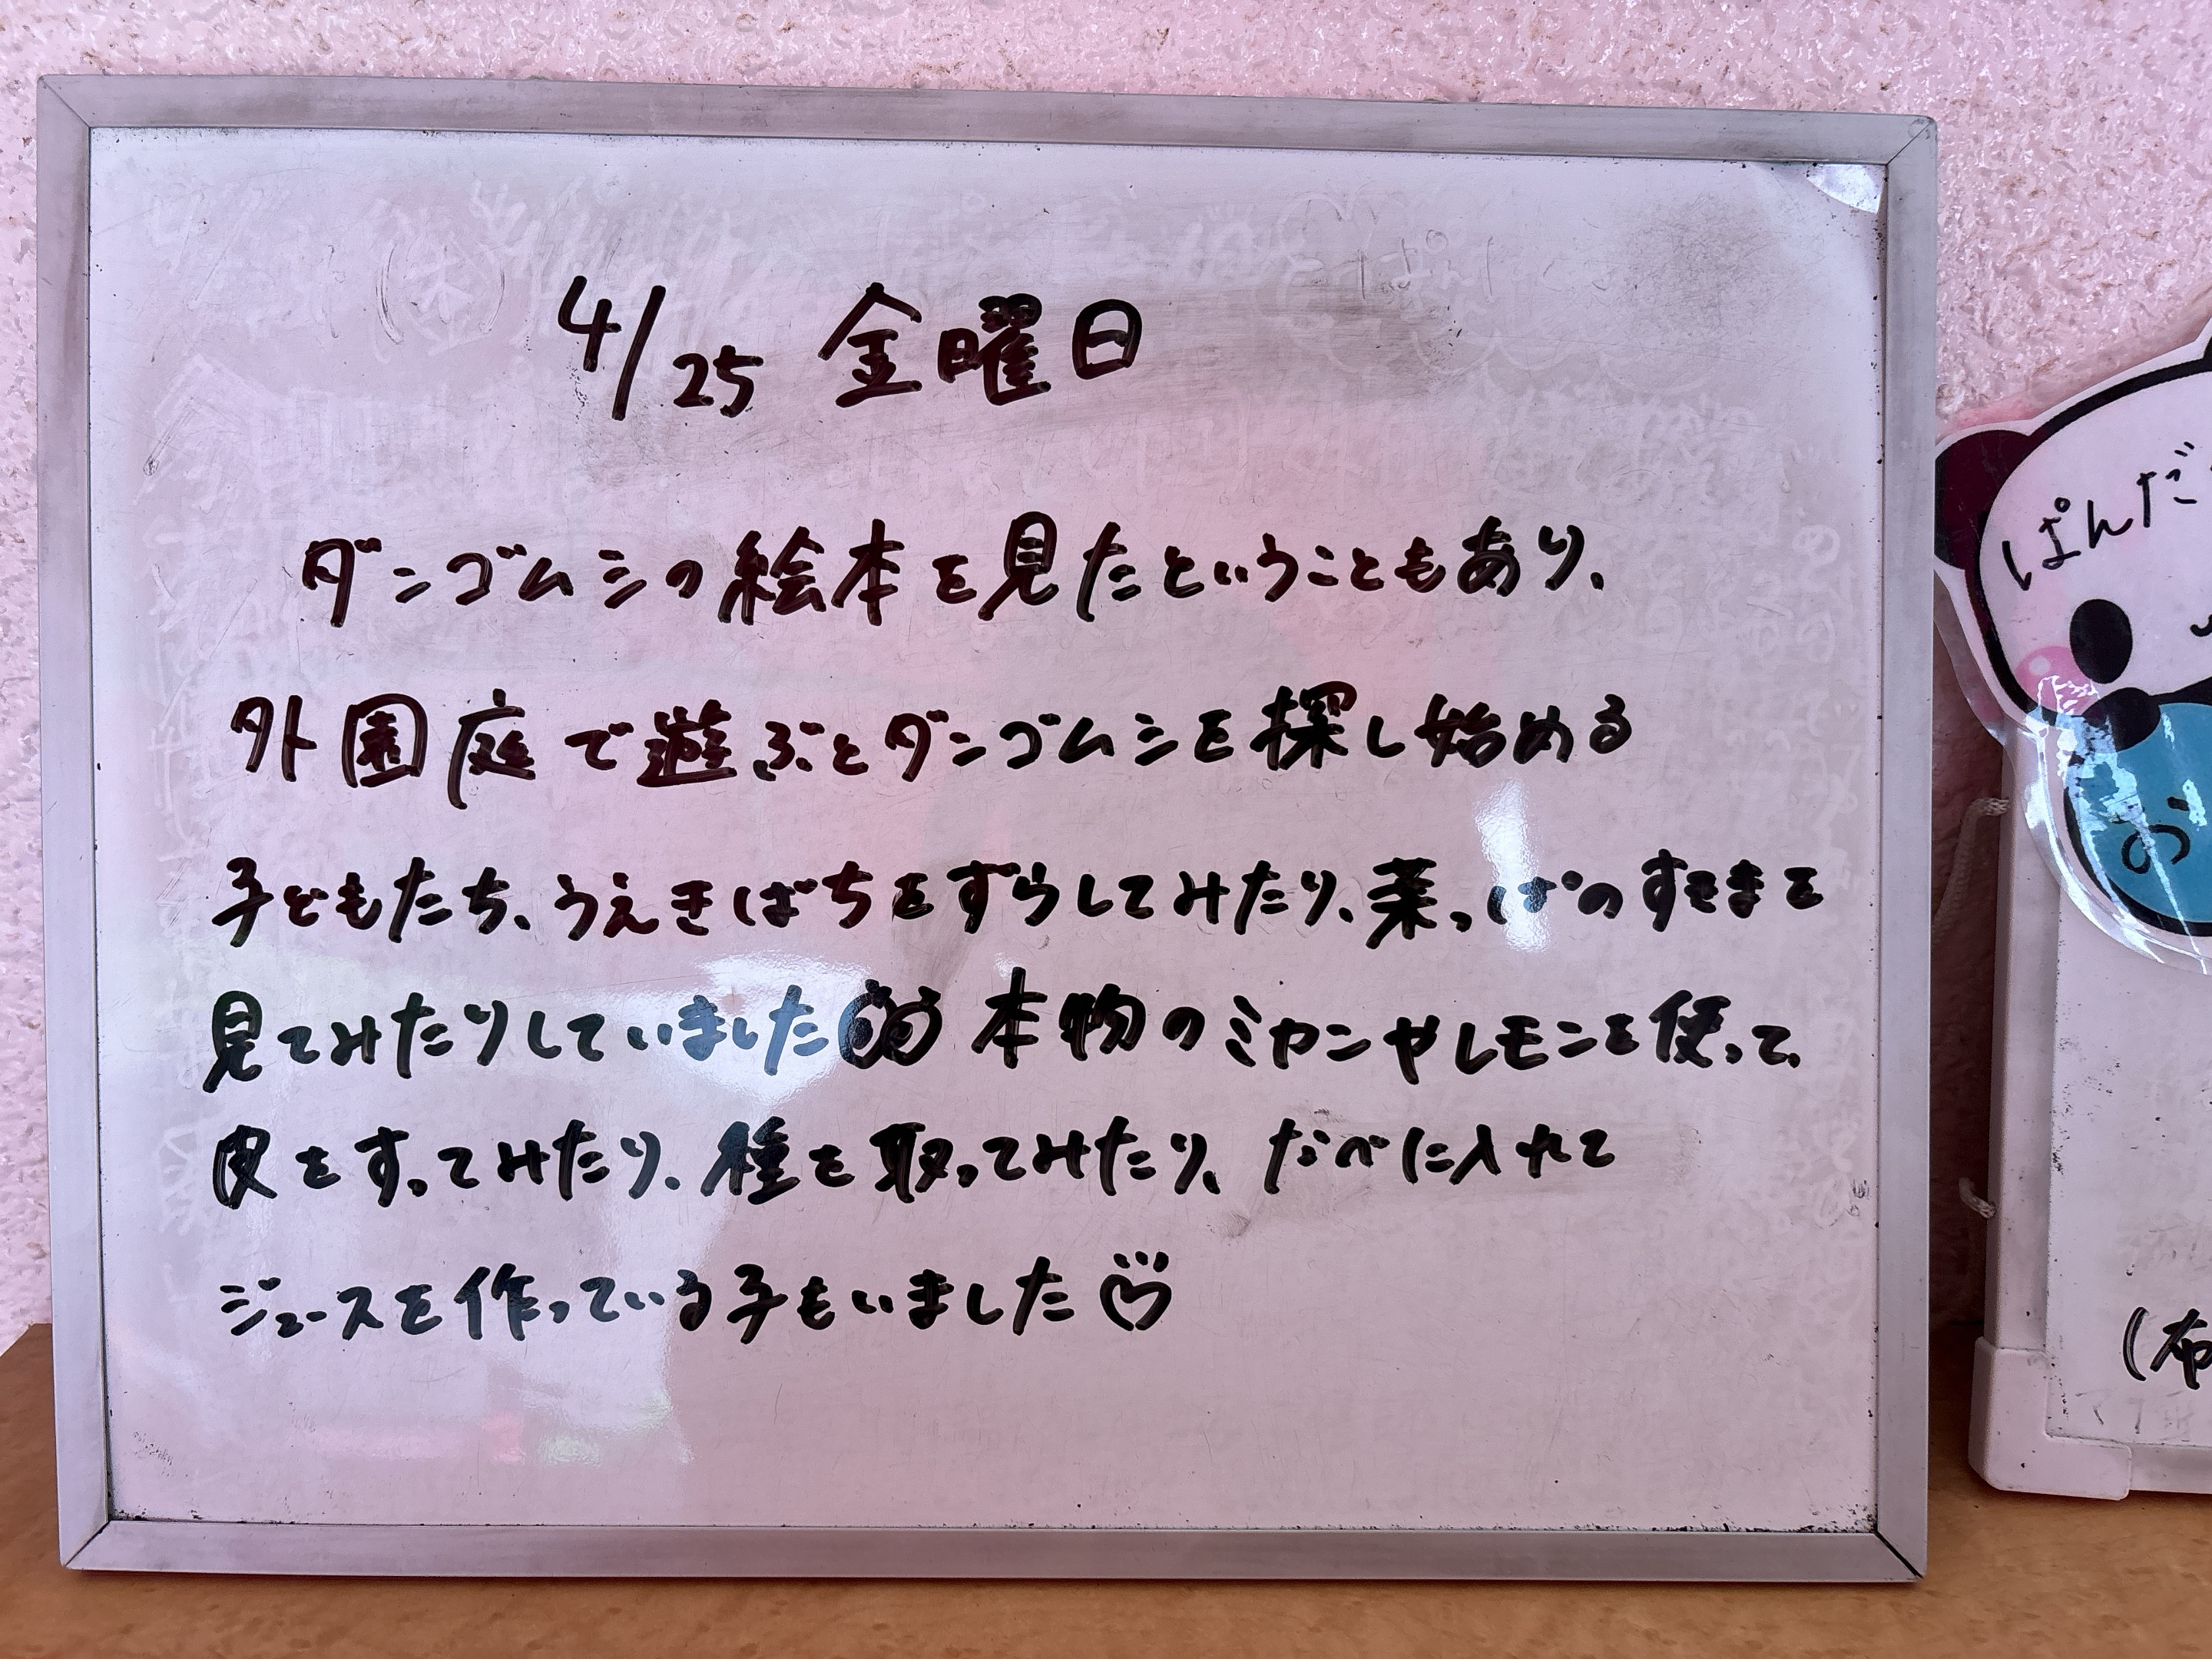 4/25 金曜日
ダンゴムシの絵本を見たということもあり、
外園庭で遊ぶとダンゴムシを探し始める
子どもたち、うえきばちをずらしてみたり、葉っぱのすきまを
見てみたりしていました 本物のミカンやレモンを使って、
皮をすってみたり、種を取ってみたり、なべに入れて
ジュースを作っている子もいました♡
ぱんだ
お
(布